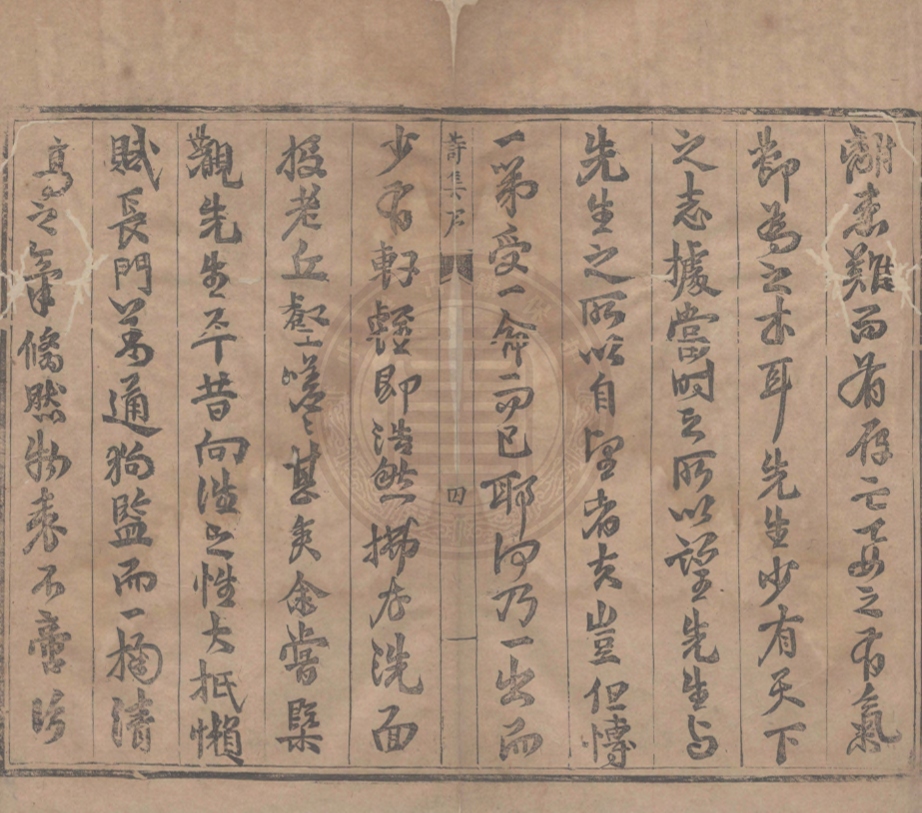 患難而有存亡要之有氣
節為之本耳先生少有天下
之志據當時之所以望先生与
先生之所以自望者夫豈但博
一第受一命而已耶何乃一出而
詩集序
四
少有軒輊即浩然拂衣洗面
投老丘壑嗟嗟甚矣余嘗槩
觀先生平昔向往之性大抵懶
賦長門羞通狗監而一摛清
高之氣翛然物表不啻